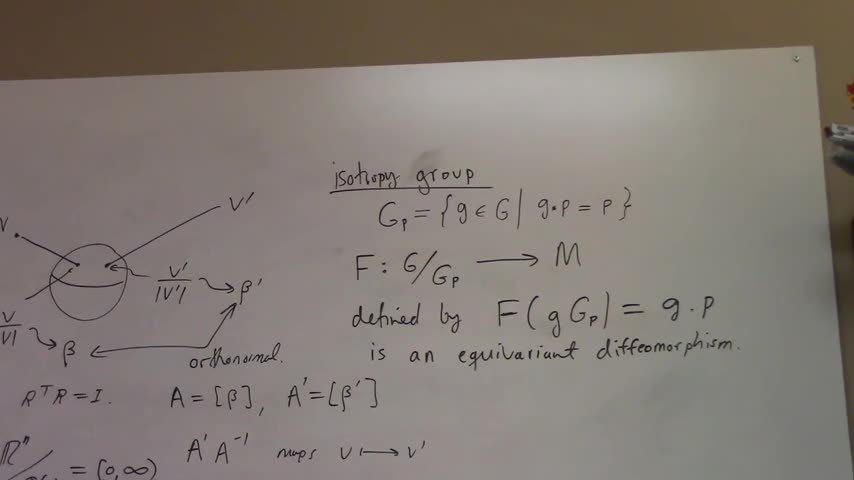 isotropy group
G_p = { g ∈ G | g·p = p }
F : G/G_p → M
defined by F(gG_p) = g·p
is an equivariant diffeomorphism.
V
V'
V'/|V'| → β'
V/|V| → β
orthonormal.
RᵀR = I. A = [β], A' = [β']
A'A⁻¹ maps v ↦ v'
ℝⁿ/ = (0,∞)